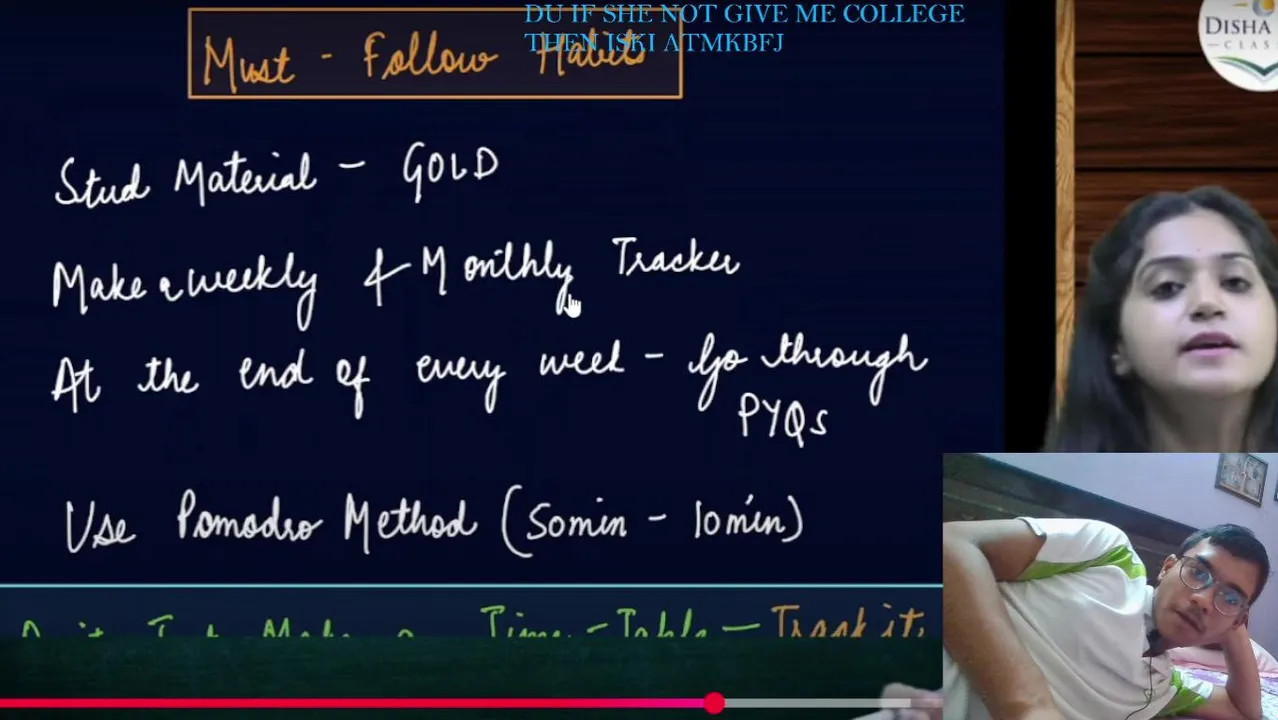 DU IF SHE NOT GIVE ME COLLEGE
THEN ISKI ATMKBFJ
Must - Follow Habits
DISHA
CLAS
Stud Material - GOLD
Make a weekly & Monthly Tracker
At the end of every week - Go through
PYQs
Use Pomodro Method (50min - 10min)
Make a Time - Table - Track it